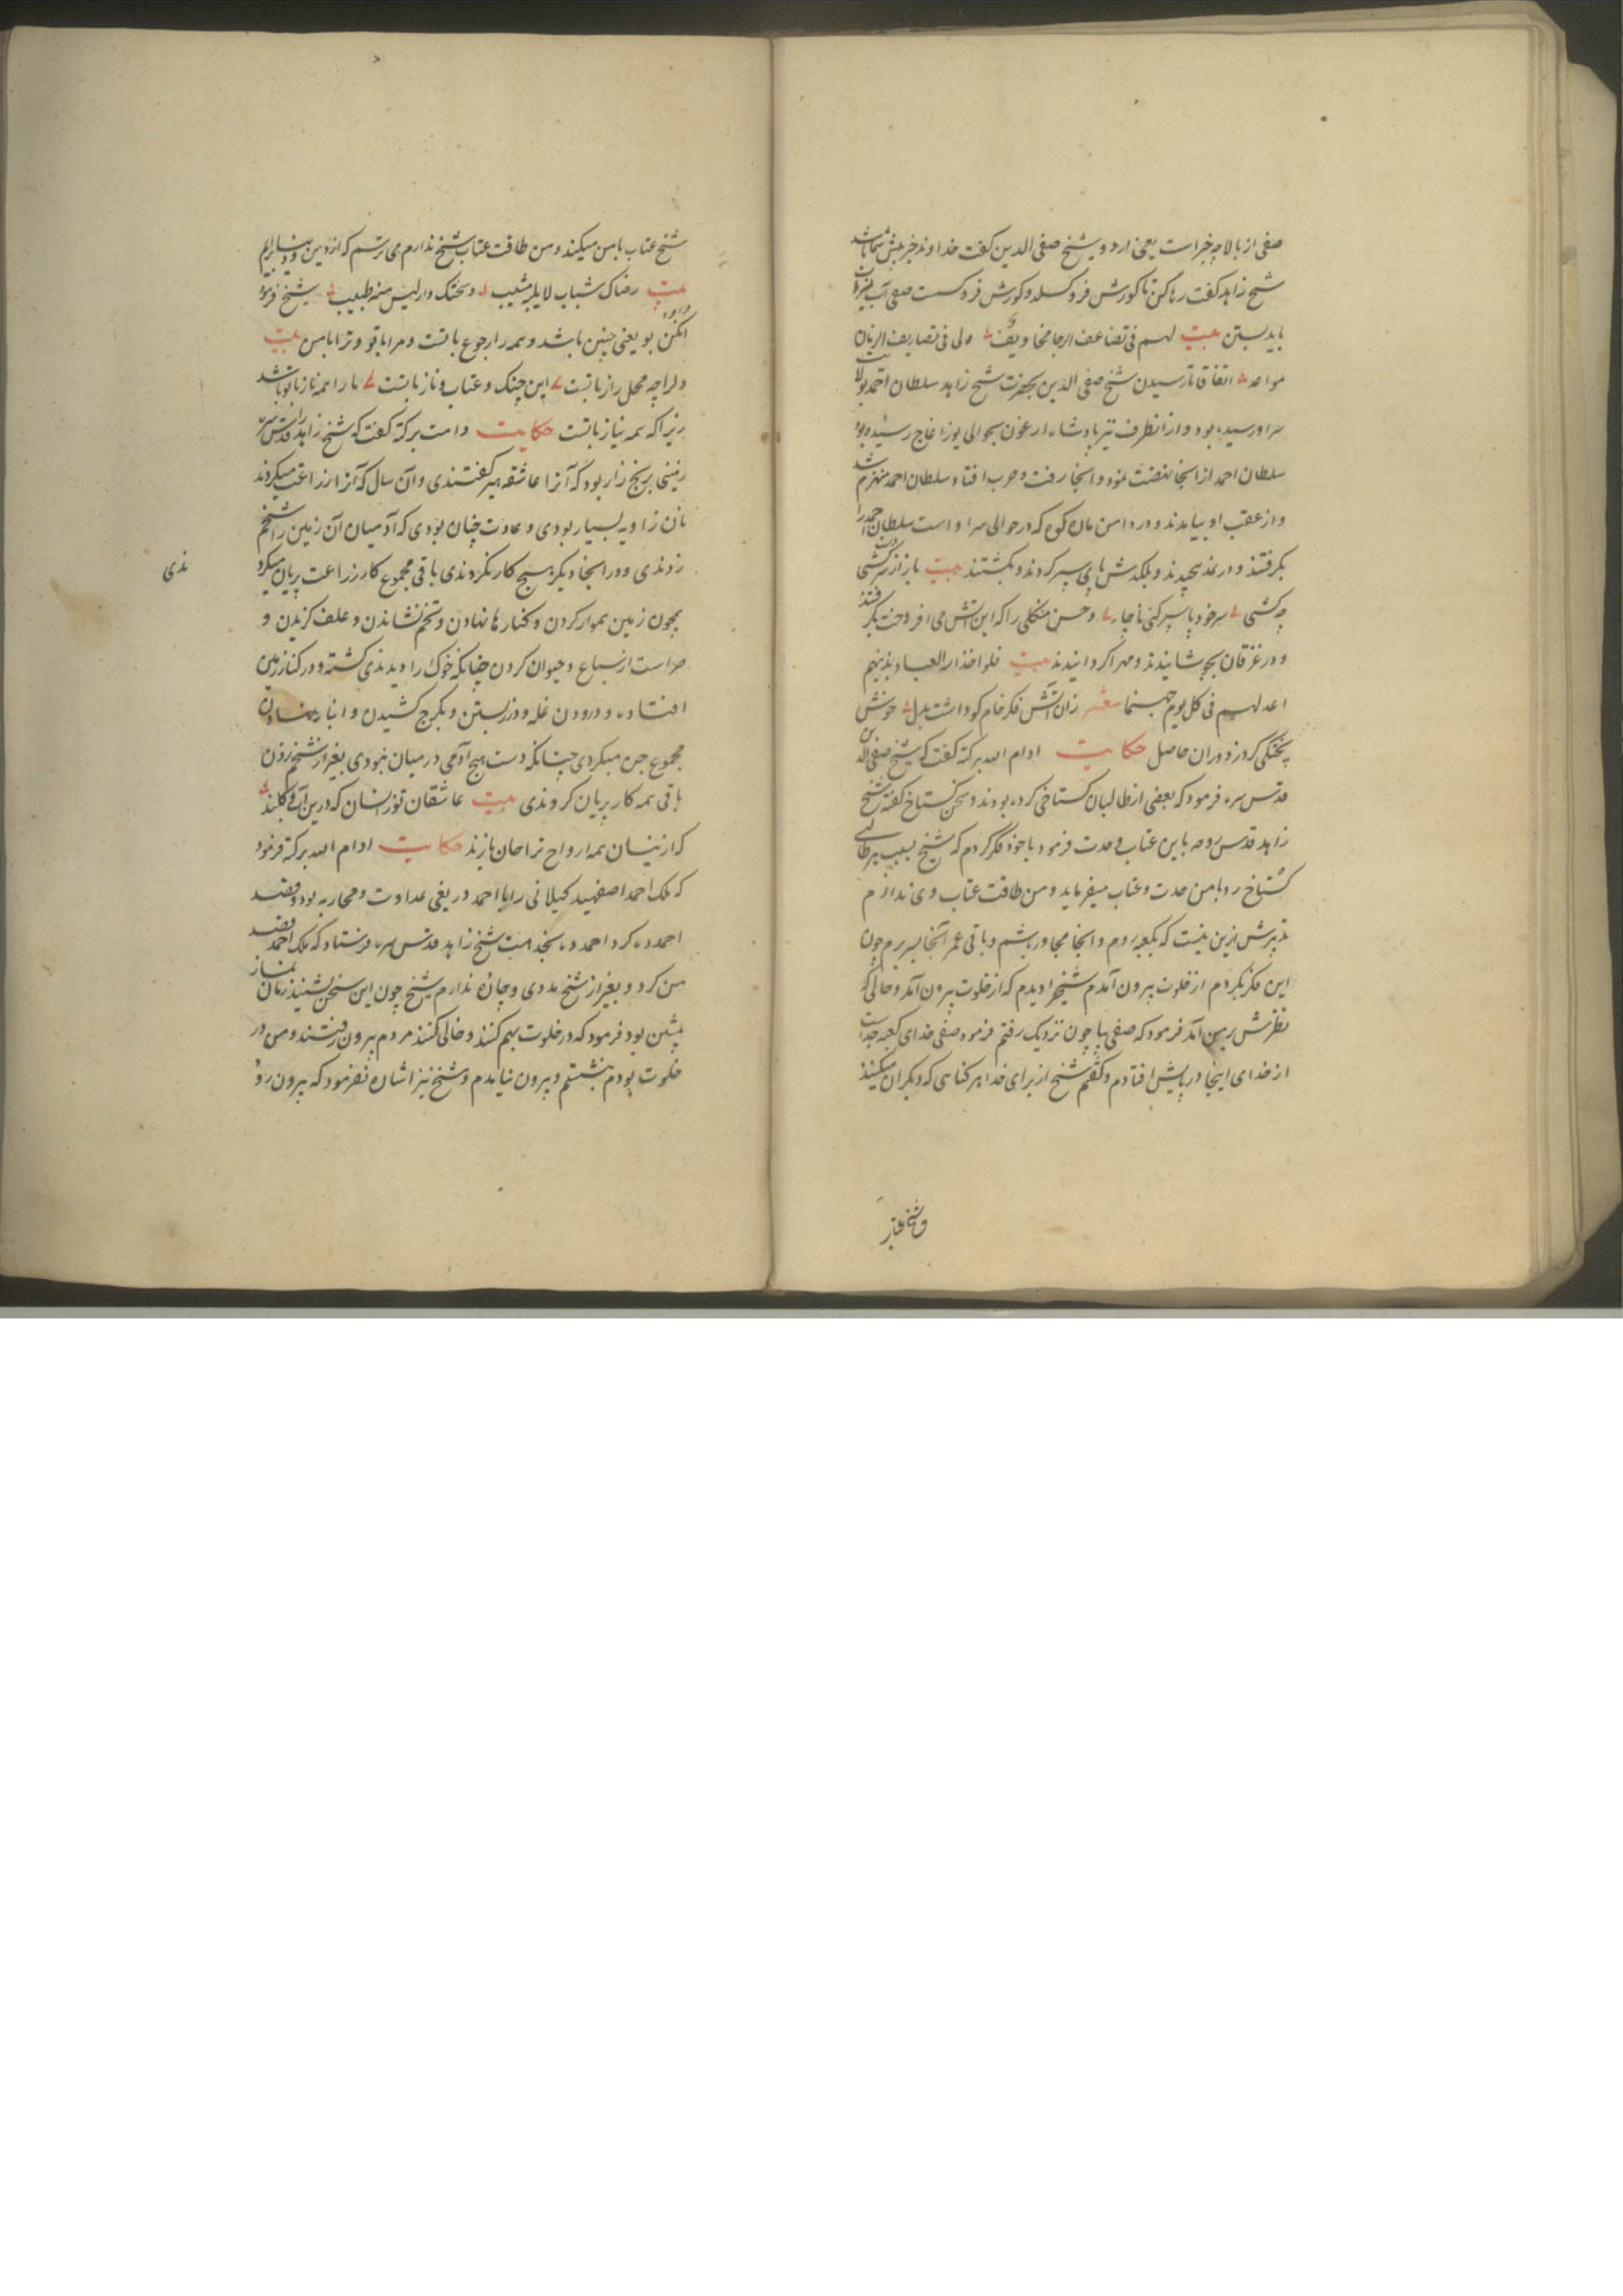 صفی از بالا چه خبر است یعنی اردو شیخ صفی الدین کفت خداوند خبر پیش شما باشد
شیخ زاهد کفت رها کن تا کورش فرو کسلد و کورش فرو کست صفی آب
باید بستن بیت لهم فی تضاعف الرجا مخاویف ولی فی تصاریف الزمان
مواعد اتفاقا تا رسیدن شیخ صفی الدین بحضرت شیخ زاهد سلطان احمد بولایت
سراو رسیده بود و از انطرف نیز پادشاه ارغون بحوالی یوز اغاج رسیده بود
سلطان احمد از اینجا نهضت نمود و انجا رفت و حرب افتاد و سلطان احمد منهزم شد
و از عقب او بیامدند و در دامن مان کوه که در حوالی سراو است سلطان احمد را
بکرفتند و در نمد پیچیدند و بلکدش پای سپر کردند و بکشتند بیت باز از سرکشی
چه کشی سر خود پا سپر کنی ناچار و حسن منکلی را که این آتش می افروخت بکرفتند
و در غزقان بجوشانیدند و مهرا کردانیدند بیت فلو اخذ الله العباد بذنبهم
اعد لهم فی کل یوم جهنما شعر زان آتش فکر خام کو داشت بدل خوش
پختکی کرد ز دوران حاصل حکایت ادام الله برکته کفت که شیخ صفی الدین
قدس سره فرمود که بعضی از طالبان کستاخی کرده بودند و سخن کستاخ کفته شیخ
زاهد قدس روحه با من عتاب و حدت فرمود با خود فکر کردم که شیخ بسبب هر طالبی
کستاخ رو با من حدت و عتاب میفرماید و من طاقت عتاب وی ندارم
تدبیرش ازین نیست که بکعبه روم و انجا مجاور باشم و باقی عمر آنجا بسر برم چون
این فکر بکردم از خلوت بیرون آمدم شیخ را دیدم که از خلوت بیرون آمد و حالی که
نظرش بر من آمد فرمود که صفی بیا چون نزدیک رفتم فرمود صفی خدای کعبه جداست
از خدای اینجا در پایش افتادم و کفتم شیخ از برای خدا هر کناهی که دیکران میکنند
شیخ عتاب با من میکند و من طاقت عتاب شیخ ندارم می ترسم که از دین و دنیا برایم
بیت رضاک شباب لا یلیه مشیب و سخطک داء لیس منه طبیب شیخ فرمود
انکن بو یعنی چنین باشد و همه را رجوع باتست و مرا با تو و ترا با من بیت
دلرا چه محل راز باتست این جنک و عتاب و ناز باتست ما را همه ناز با تو باشد
زیرا که همه نیاز باتست حکایت دامت برکته کفت که شیخ زاهد را قدس سره
زمینی برنج زار بود که آنرا عاشقه بیر کفتندی و آن سال که آنرا زراعت میکردند
نان زاویه بسیار بودی و عادت چنان بودی که آدمیان آن زمین را شخم
زدندی و در انجا دیکر هیچ کار نکردندی باقی مجموع کار زراعت پریان میکرد
ندی
همچون زمین هموار کردن و کنارها نهادن و تخم نشاندن و علف کزیدن و
حراست از سباع و حیوان کردن چنانکه خوک را دیدندی کشته و در کنار زمین
افتاده و درودن غله و درز بستن و بکرج کشیدن و انبار نهادن
مجموع جن میکردی چنانکه دست هیچ آدمی در میان نبودی بغیر از شخم زدن
باقی همه کار پریان کردندی بیت عاشقان تو زانسان که درین آب و کلند
که ازینسان همه ارواح ترا جان بازند حکایت ادام الله برکته فرمود
که ملک احمد اصفهبد کیلانی را با احمد در یغی عداوت و محاربه بود و قصد
احمد در کرد احمد در بخدمت شیخ زاهد قدس سره فرستاد که ملک احمد قصد
من کرد و بغیر از شیخ مددی و چاره ندارم شیخ چون این سخن بشنید زمان نماز
پیشین بود فرمود که در خلوت بهم کنند و خالی کنند مردم بیرون رفتند و من در
خلوت بودم بنشستم و بیرون نیامدم و شیخ نیز اشارت نفرمود که بیرون رو